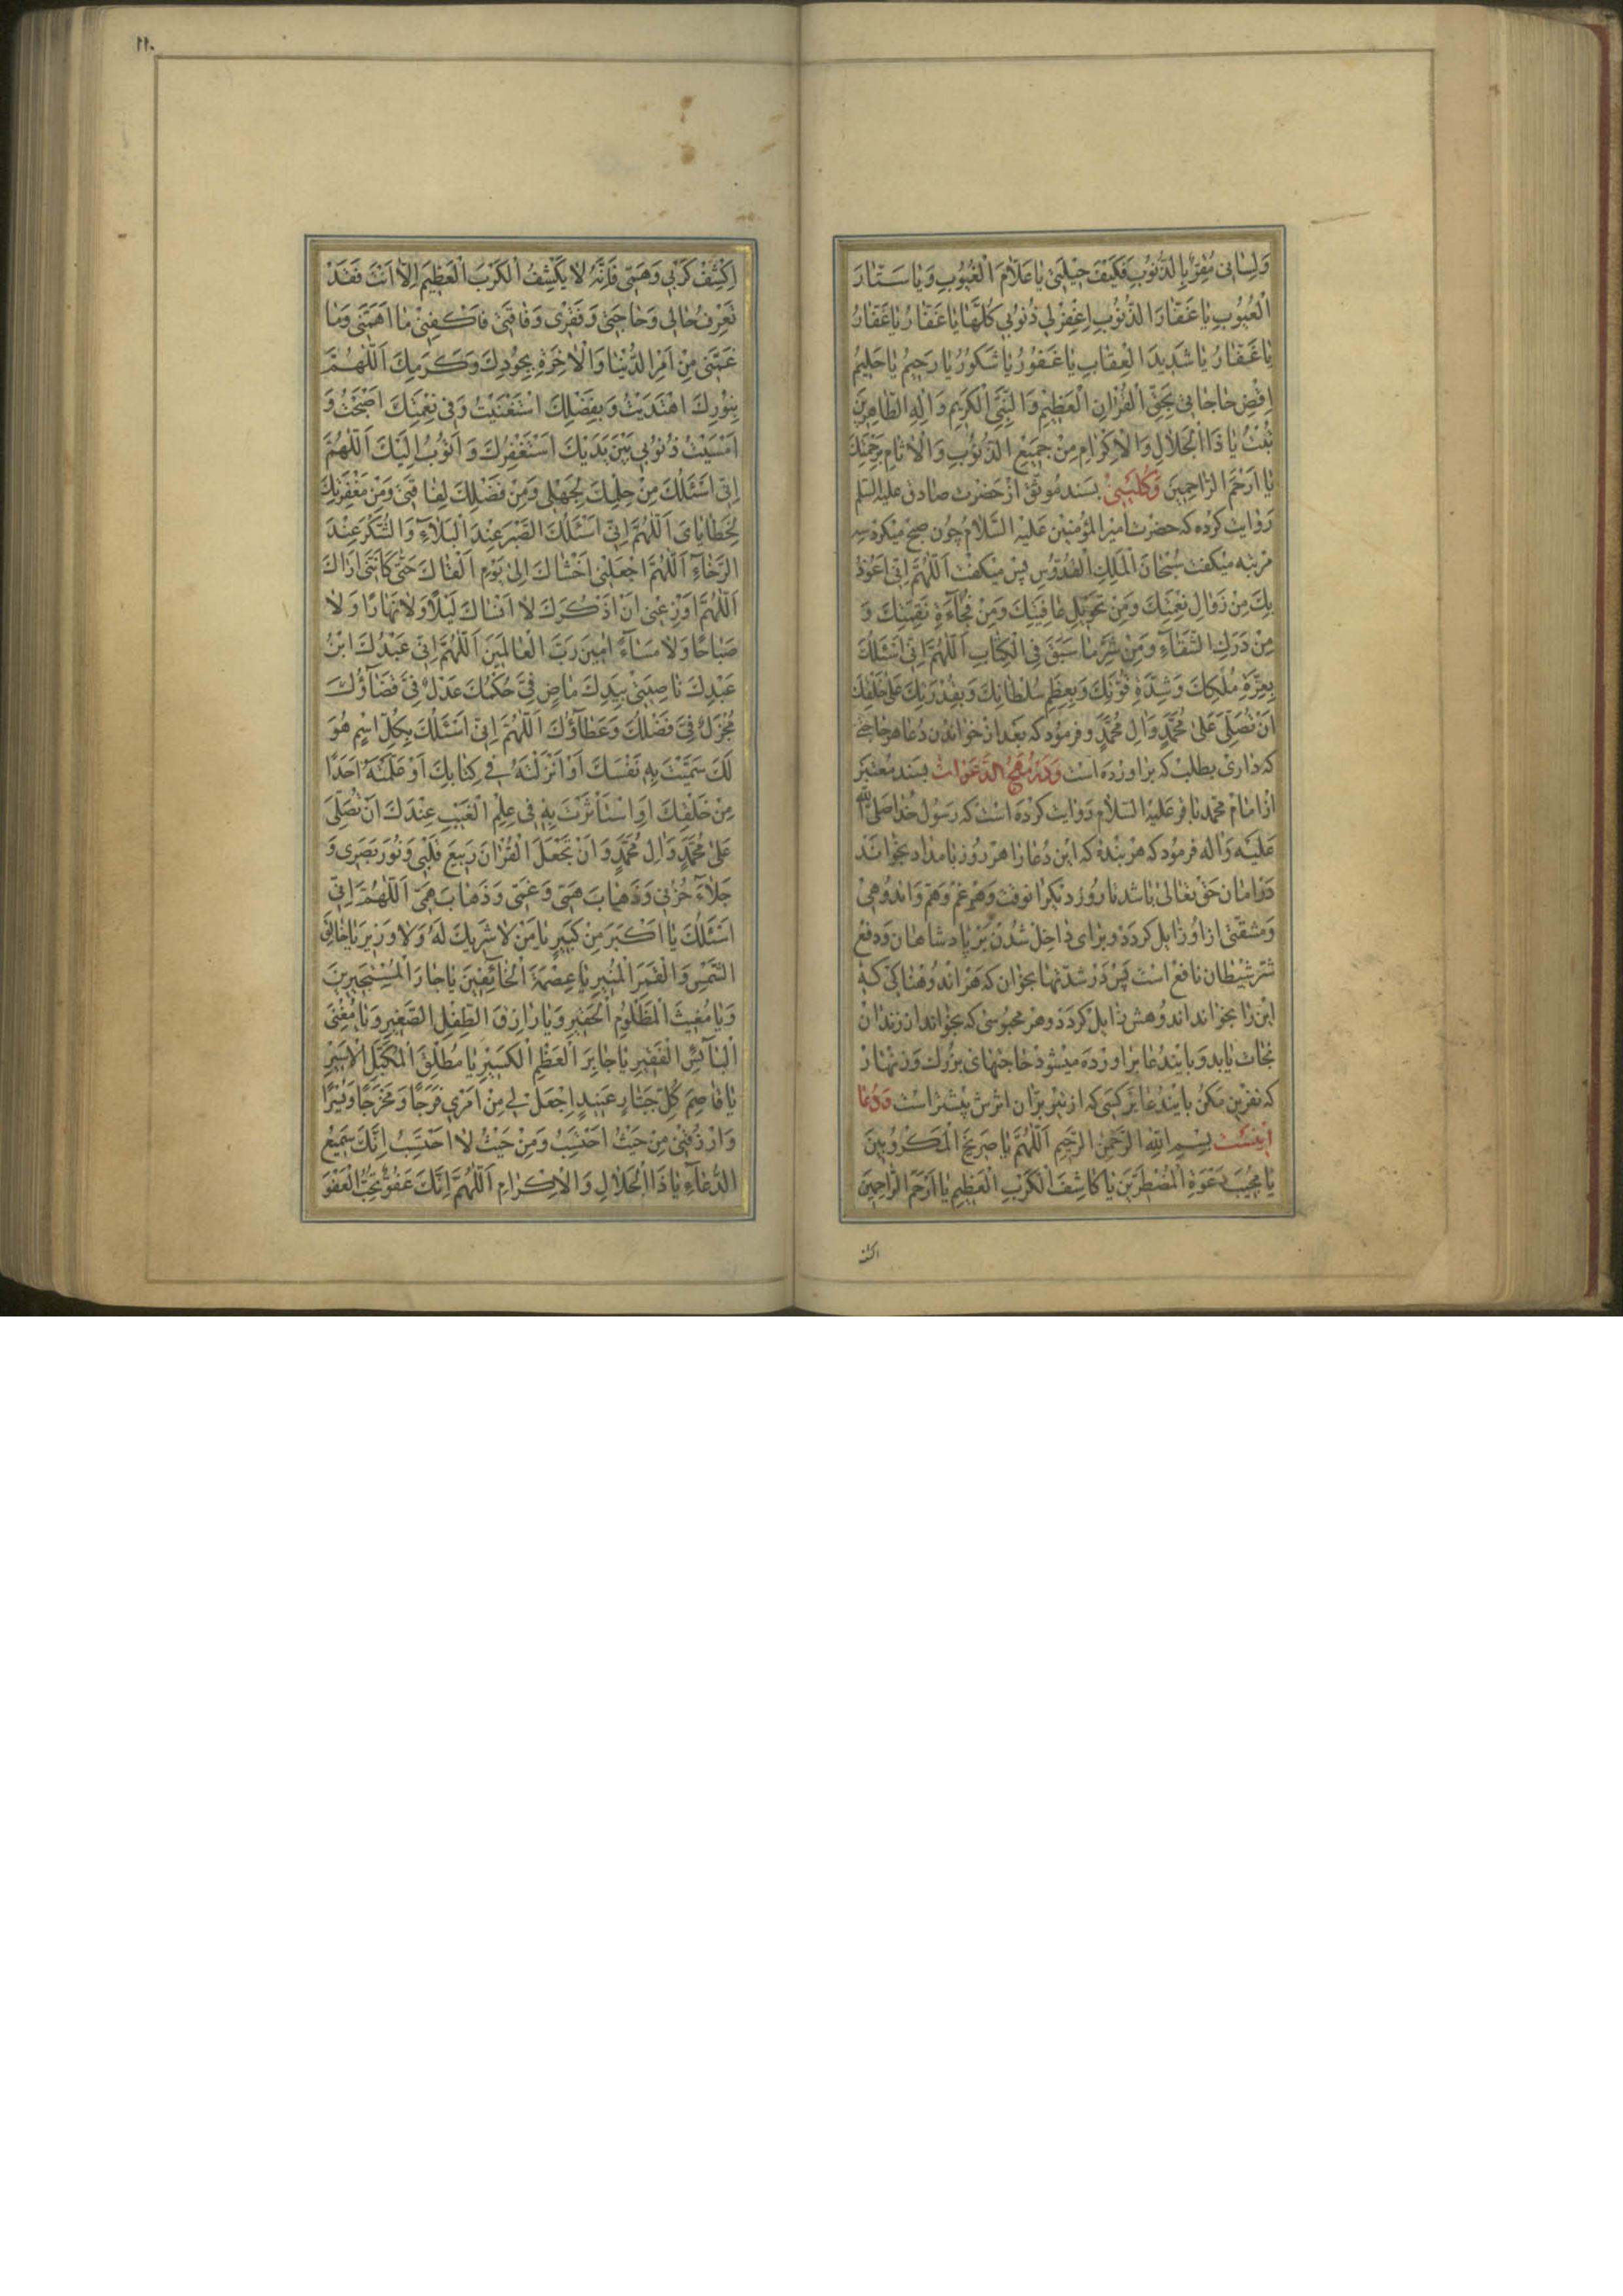 وَلِسٰانی مُقِرٌّ بِالذُّنُوبِ فَکَیْفَ حیٖلَتیٖ یٰا عَلّٰامَ الْغُیُوبِ وَیٰا سَتّٰارَ
الْعُیُوبِ یٰا غَفّٰارَ الذُّنُوبِ اِغْفِرْ لی ذُنُوبی کُلَّهٰا یٰا غَفّٰارُ یٰا غَفّٰارُ
یٰا غَفّٰارُ یٰا شَدیٖدَ الْعِقٰابِ یٰا غَفُورُ یٰا شَکُورُ یٰا رَحیٖمُ یٰا حَلیٖمُ
اِقْضِ حٰاجٰاتی بِحَقِّ الْقُرْاٰنِ الْعَظیٖمِ وَالنَّبِیِّ الْکَریٖمِ وَاٰلِهِ الطّٰاهِریٖنَ
تُبْتُ یٰا ذَا الْجَلٰالِ وَالْاِکْرٰامِ مِنْ جَمیٖعِ الذُّنُوبِ وَالْاٰثٰامِ بِرَحْمَتِکَ
یٰا اَرْحَمَ الرّٰاحِمیٖنَ وَکُلَیْنیٖ بسند مُوثَّق از حَضرت صٰادق علیه السّلم
رَوٰایت کرده که حضرت امیرالمؤمنیٖن عَلیْه السَّلٰام چون صبح میٖکرد سه
مرتبه میٖکفت سُبْحٰانَ الْمَلِکِ الْقُدُّوسِ پس میٖکفت اَللّٰهُمَّ اِنّی اَعُوذُ
بِکَ مِنْ زَوٰالِ نِعْمَتِکَ وَمِنْ تَحْویٖلِ عٰافِیَتِکَ وَمِنْ فُجْآءَةِ نَقِمَتِکَ وَ
مِنْ دَرَکِ الشَّقٰآءِ وَمِنْ شَرِّ مٰا سَبَقَ فِی الْکِتٰابِ اَللّٰهُمَّ اِنّی اَسْئَلُکَ
بِعِزَّةِ مُلْکِکَ وَشِدَّةِ قُوَّتِکَ وَبِعِظَمِ سُلْطٰانِکَ وَبِقُدْرَتِکَ عَلیٰ خَلْقِکَ
اَنْ تُصَلِّیَ عَلیٰ مُحَمَّدٍ وَاٰلِ مُحَمَّدٍ و فرمود که بَعد از خوٰاندن دُعٰا هر حٰاجتی
که دٰاری بطلب که برٰاورده است وَدَر مُهَجُ الدَّعَوٰات بسند مُعتبر
از امٰام محمّد بٰاقر عَلیْه السّلٰام رَوٰایت کرده است که رَسُول خُدٰا صَلَّی اللّٰه
عَلَیْه وَاٰله فرمود که هر بنده که این دُعٰا رٰا هر روز بٰامداد بخوٰاند
دَر اَمٰان حق تعٰالیٰ بٰاشد تٰا روز دیٖکر انوقت وَهر غم وَهمّ وَاندُوهی
وَمشقّتی از او زٰایل کردد و برٰای دٰاخل شُدن بَر پٰادشاهان وَدفع
شرّ شیْطان نٰافع است پس دَر شدّتها بخوٰان که هَر اندُوهنٰاکی که
این رٰا بخوٰاند اندُوهش زٰایل کردَد و هر محبوسی که بخوٰاند از زندٰان
نجٰات یٰابد و بٰایندُعٰا برٰاورده میٖشود حٰاجتهای بزرک وَزنهٰار
که نفرین مَکن بایندُعٰا بَر کسی که از تیٖر برّٰان اثرش بیٖشتر است وَدُعٰا
اینست بِسْمِ اللّٰهِ الرَّحْمٰنِ الرَّحیٖمِ اَللّٰهُمَّ یٰا صَریٖخَ الْمَکْرُوبیٖنَ
یٰا مُجیٖبَ دَعْوَةِ الْمُضْطَرّیٖنَ یٰا کٰاشِفَ الْکَرْبِ الْعَظیٖمِ یٰا اَرْحَمَ الرّٰاحِمیٖنَ
اکشف
١١٠
اِکْشِفْ کَرْبی وَهَمّی فَاِنَّهُ لٰا یَکْشِفُ الْکَرْبَ الْعَظیٖمَ اِلّٰا اَنْتَ فَقَدْ
تَعْرِفُ حٰالی وَحٰاجَتیٖ وَفَقْریٖ وَفٰاقَتیٖ فَاکْفِنیٖ مٰا اَهَمَّنیٖ وَمٰا
غَمَّنیٖ مِنْ اَمْرِ الدُّنْیٰا وَالْاٰخِرَةِ بِجُودِکَ وَکَرَمِکَ اَللّٰهُمَّ
بِنُورِکَ اهْتَدَیْتُ وَبِفَضْلِکَ اسْتَغْنَیْتُ وَفی نِعْمَتِکَ اَصْبَحْتُ وَ
اَمْسَیْتُ ذُنُوبی بَیْنَ یَدَیْکَ اَسْتَغْفِرُکَ وَاَتُوبُ اِلَیْکَ اَللّٰهُمَّ
اِنّی اَسْئَلُکَ مِنْ حِلْمِکَ لِجَهْلی وَمِنْ فَضْلِکَ لِفٰاقَتیٖ وَمِنْ مَغْفِرَتِکَ
لِخَطٰایٰایَ اَللّٰهُمَّ اِنّی اَسْئَلُکَ الصَّبْرَ عِنْدَ الْبَلٰآءِ وَالشُّکْرَ عِنْدَ
الرَّخٰآءِ اَللّٰهُمَّ اجْعَلْنیٖ اَخْشٰاکَ اِلیٰ یَوْمِ اَلْقٰاکَ حَتّیٰ کَاَنَّنیٖ اَرٰاکَ
اَللّٰهُمَّ اَوْزِعْنیٖ اَنْ اَذْکُرَکَ لٰا اَنْسٰاکَ لَیْلًا وَلٰا نَهٰارًا وَلٰا
صَبٰاحًا وَلٰا مَسٰآءً اٰمیٖنَ رَبَّ الْعٰالَمیٖنَ اَللّٰهُمَّ اِنّی عَبْدُکَ ابْنُ
عَبْدِکَ نٰاصِیَتیٖ بِیَدِکَ مٰاضٍ فِیَّ حُکْمُکَ عَدْلٌ فِیَّ قَضٰآؤُکَ
مُجْزَلٌ فِیَّ فَضْلُکَ وَعَطٰآؤُکَ اَللّٰهُمَّ اِنّی اَسْئَلُکَ بِکُلِّ اسْمٍ هُوَ
لَکَ سَمَّیْتَ بِهِ نَفْسَکَ اَوْ اَنْزَلْتَهُ فی کِتٰابِکَ اَوْ عَلَّمْتَهُ اَحَدًا
مِنْ خَلْقِکَ اَوِ اسْتَاْثَرْتَ بِهِ فی عِلْمِ الْغَیْبِ عِنْدَکَ اَنْ تُصَلِّیَ
عَلیٰ مُحَمَّدٍ وَاٰلِ مُحَمَّدٍ وَاَنْ تَجْعَلَ الْقُرْاٰنَ رَبیٖعَ قَلْبیٖ وَنُورَ بَصَری وَ
جَلٰآءَ حُزْنی وَذَهٰابَ هَمّی وَغَمّی وَذَهٰابَ هَمّی اَللّٰهُمَّ اِنّی
اَسْئَلُکَ یٰا اَکْبَرَ مِنْ کَبیٖرٍ یٰا مَنْ لٰا شَریٖکَ لَهُ وَلٰا وَزیٖرَ یٰا خٰالِقَ
الشَّمْسِ وَالْقَمَرِ الْمُنیٖرِ یٰا عِصْمَةَ الْخٰآئِفیٖنَ یٰا جٰارَ الْمُسْتَجیٖریٖنَ
وَیٰا مُغیٖثَ الْمَظْلُومِ الْحَقیٖرِ وَیٰا رٰازِقَ الطِّفْلِ الصَّغیٖرِ وَیٰا مُغْنِیَ
الْبٰآئِسِ الْفَقیٖرِ یٰا جٰابِرَ الْعَظْمِ الْکَسیٖرِ یٰا مُطْلِقَ الْمُکَبَّلِ الْاَسیٖرِ
یٰا قٰاصِمَ کُلِّ جَبّٰارٍ عَنیٖدٍ اِجْعَلْ لی مِنْ اَمْری فَرَجًا وَمَخْرَجًا وَیُسْرًا
وَارْزُقْنیٖ مِنْ حَیْثُ اَحْتَسِبُ وَمِنْ حَیْثُ لٰا اَحْتَسِبُ اِنَّکَ سَمیٖعُ
الدُّعٰآءِ یٰا ذَا الْجَلٰالِ وَالْاِکْرٰامِ اَللّٰهُمَّ اِنَّکَ عَفُوٌّ تُحِبُّ الْعَفْوَ